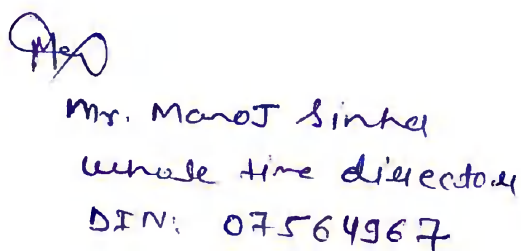 Mr. Manoj Sinha
whole time director
DIN: 07564967